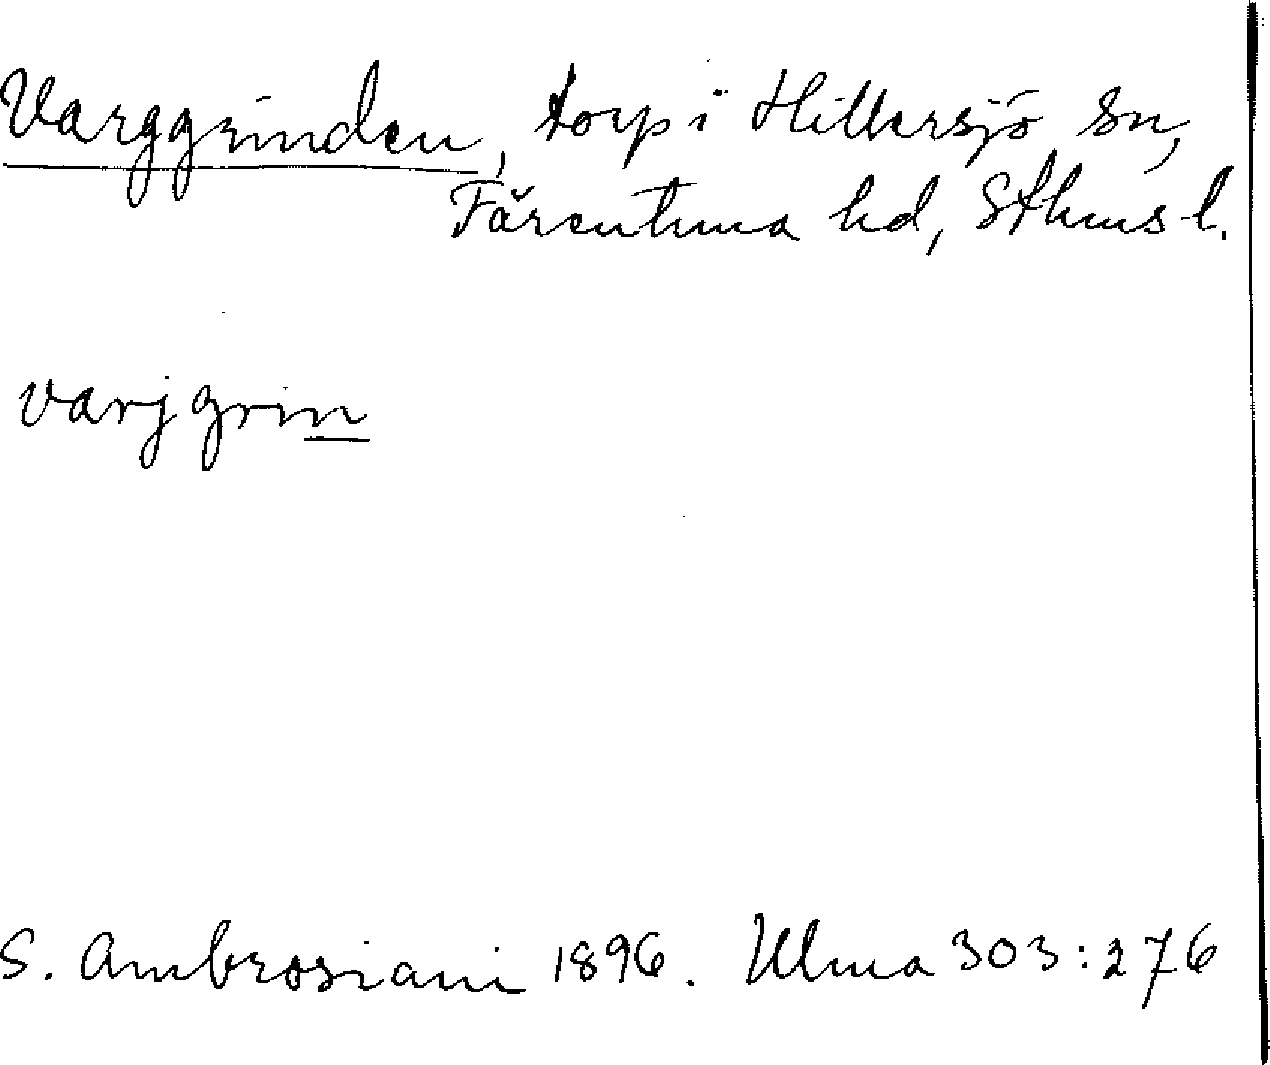 Varggrinden, torp i Hillersjö sn,
Färentuna hd, Sthms l.
varjgrin
S. Ambrosiani 1896. Ulma 303:276